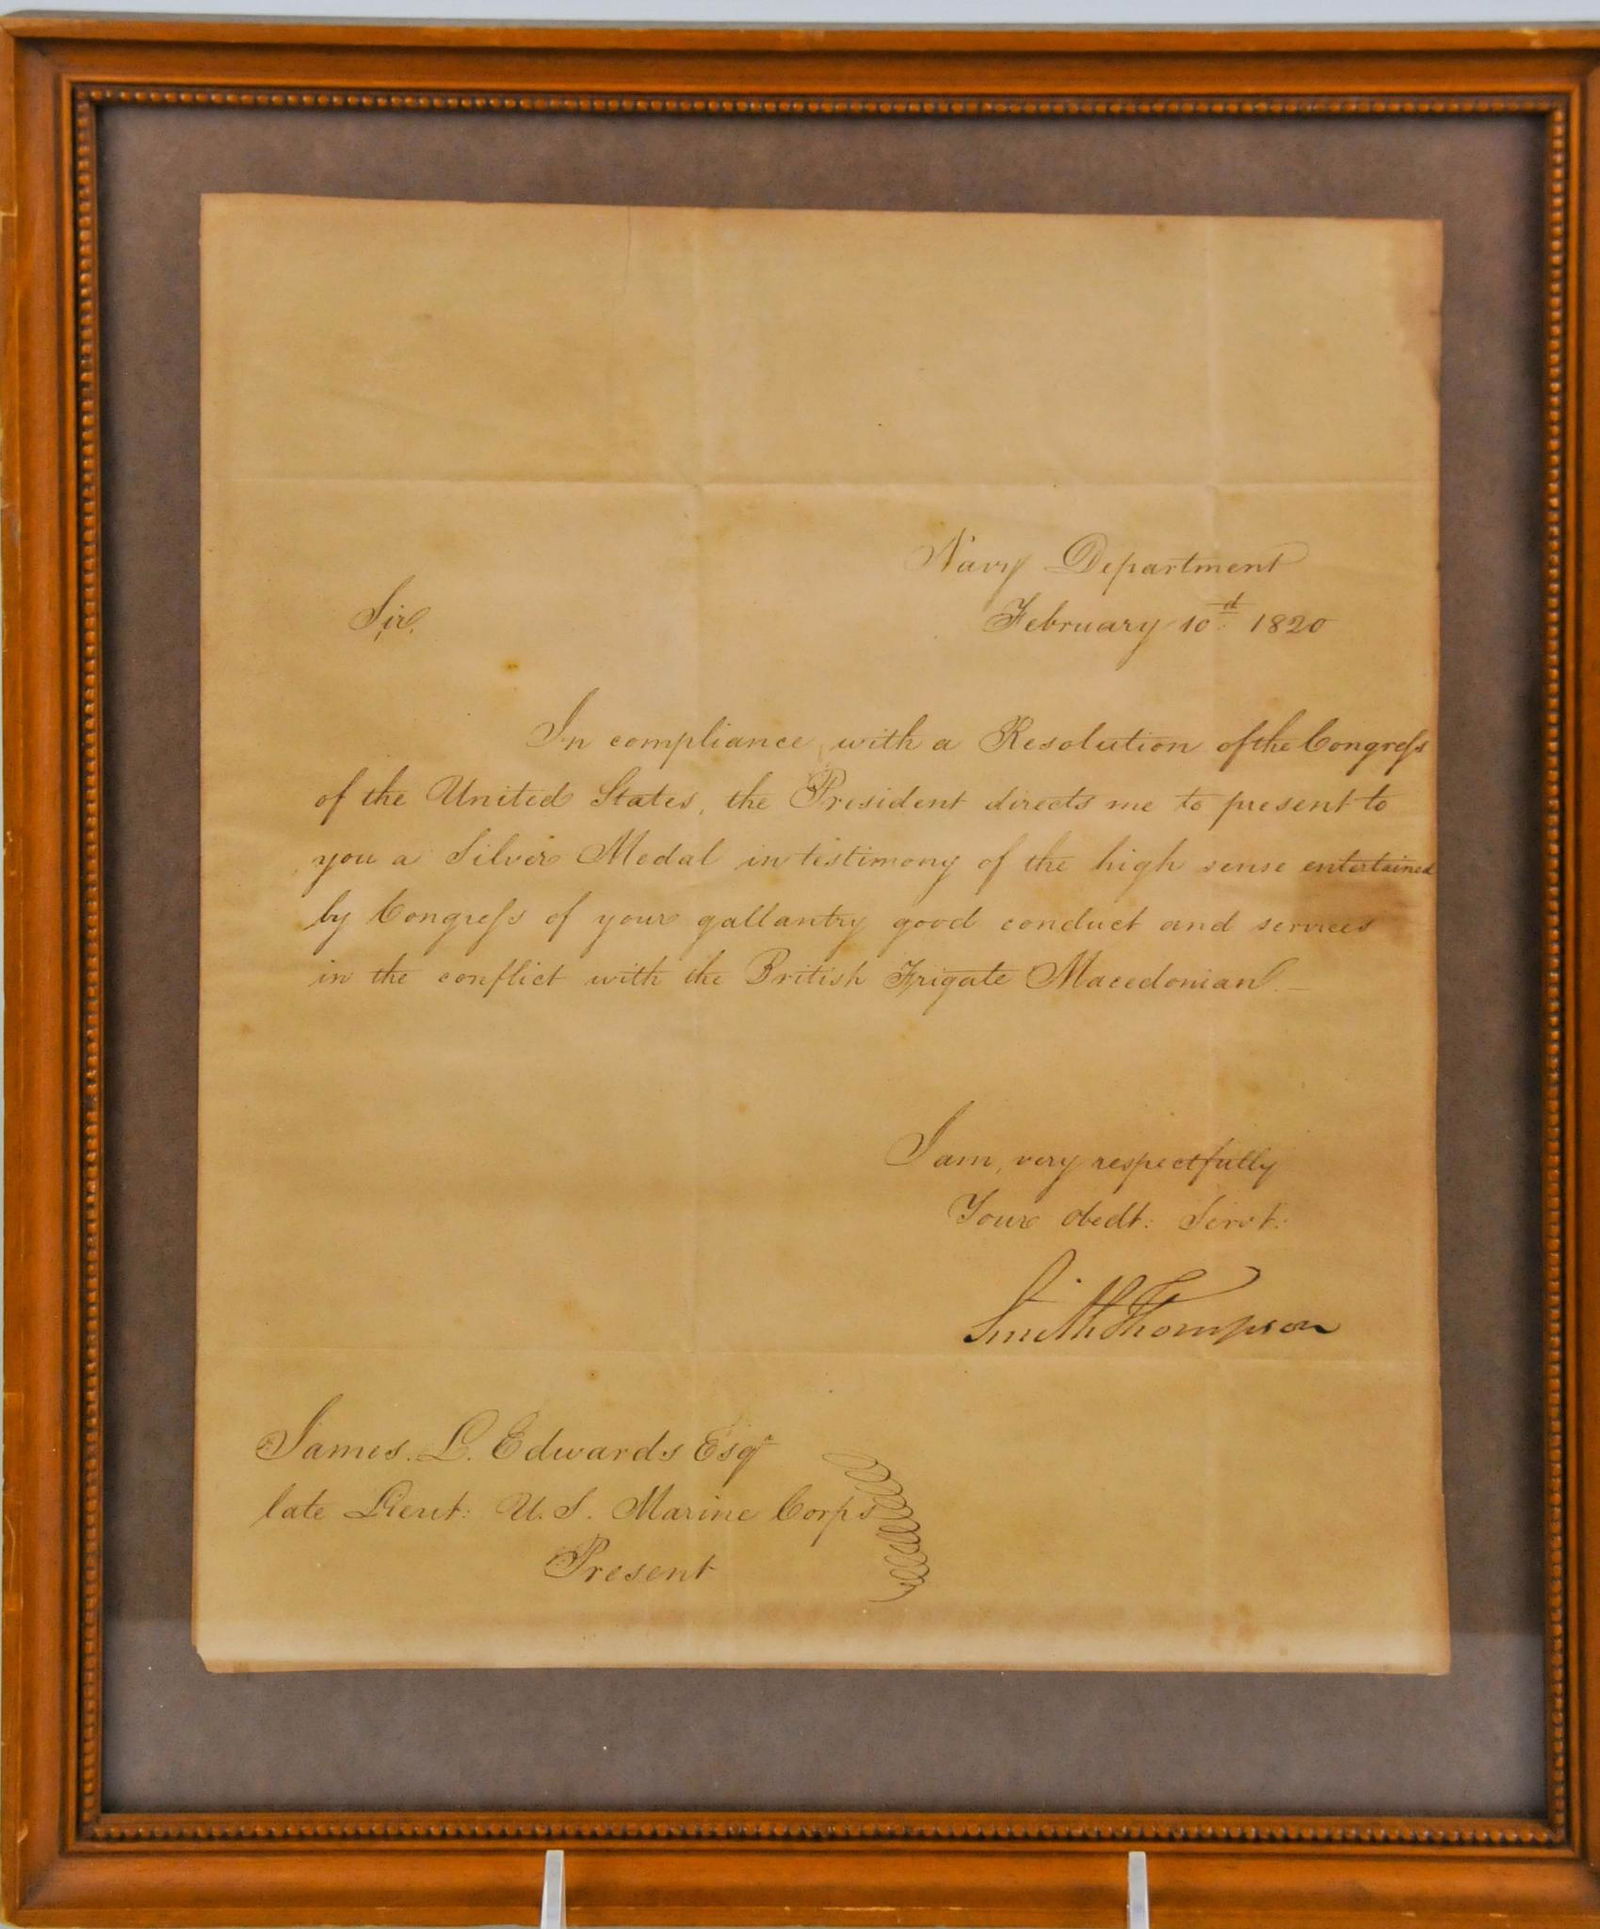 Navy Department
February 10d. 1820
Sir,
In compliance with a Resolution of the Congreſs
of the United States, the President directs me to present to
you a Silver Medal in testimony of the high sense entertained
by Congreſs of your gallantry good conduct and services
in the conflict with the British Frigate Macedonian. —
I am, very respectfully
Your obedt: Servt:
Smith Thompson
James. L. Edwards Esqr
late Lieut: U. S. Marine Corps
Present